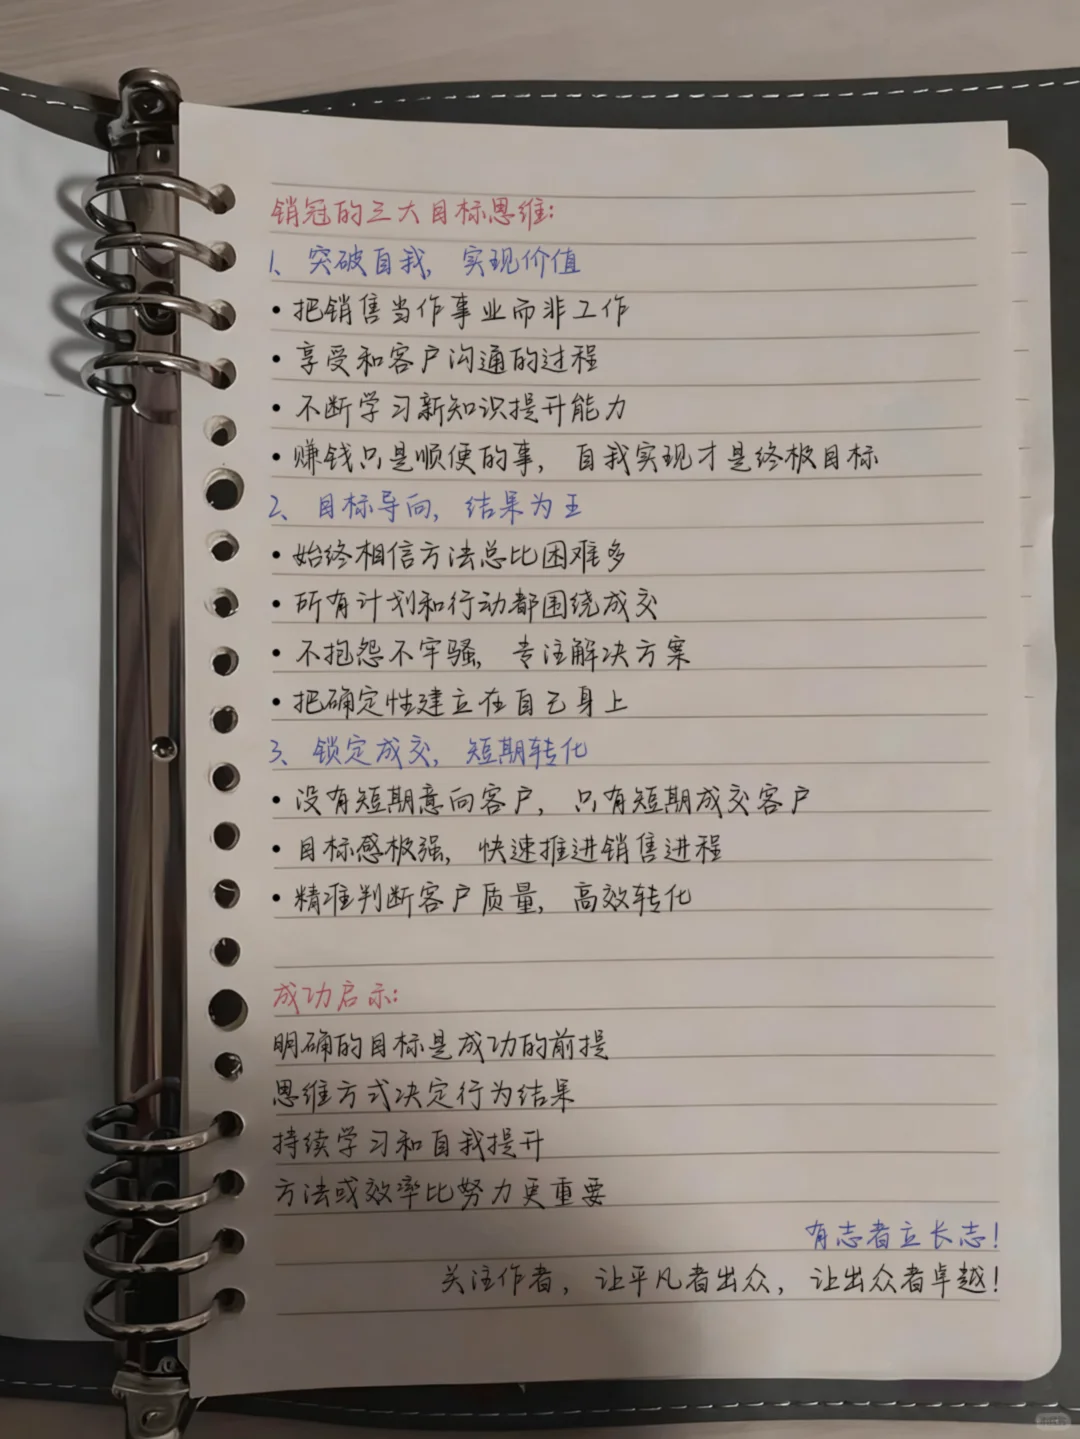 销冠的三大目标思维:
1、突破自我, 实现价值
• 把销售当作事业而非工作
• 享受和客户沟通的过程
• 不断学习新知识提升能力
• 赚钱只是顺便的事, 自我实现才是终极目标
2、目标导向, 结果为王
• 始终相信方法总比困难多
• 所有计划和行动都围绕成交
• 不抱怨不牢骚, 专注解决方案
• 把确定性建立在自己身上
3、锁定成交, 短期转化
• 没有短期意向客户, 只有短期成交客户
• 目标感极强, 快速推进销售进程
• 精准判断客户质量, 高效转化
成功启示:
明确的目标是成功的前提
思维方式决定行为结果
持续学习和自我提升
方法或效率比努力更重要
有志者立长志!
关注作者, 让平凡者出众, 让出众者卓越!